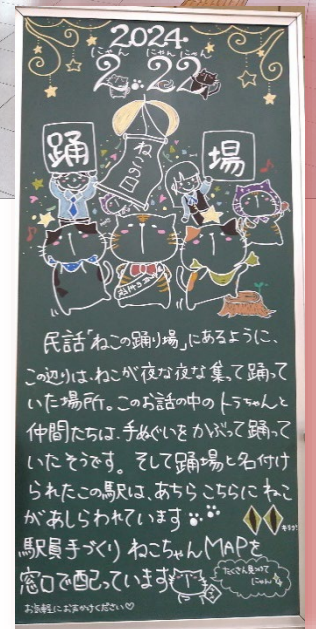 2024.
にゃん にゃん にゃん
2.22
ねこの日
踊 場
民話「ねこの踊り場」にあるように、
この辺りは、ねこが夜な夜な集って踊って
いた場所。このお話の中のトラちゃんと
仲間たちは、手ぬぐいをかぶって踊って
いたそうです。そして踊場と名付け
られたこの駅は、あちらこちらにねこ
があしらわれています
キラッ
駅員手づくりねこちゃんMAPを
窓口で配っています
たくさん見つけて
にゃん
お気軽にお声かけください♡